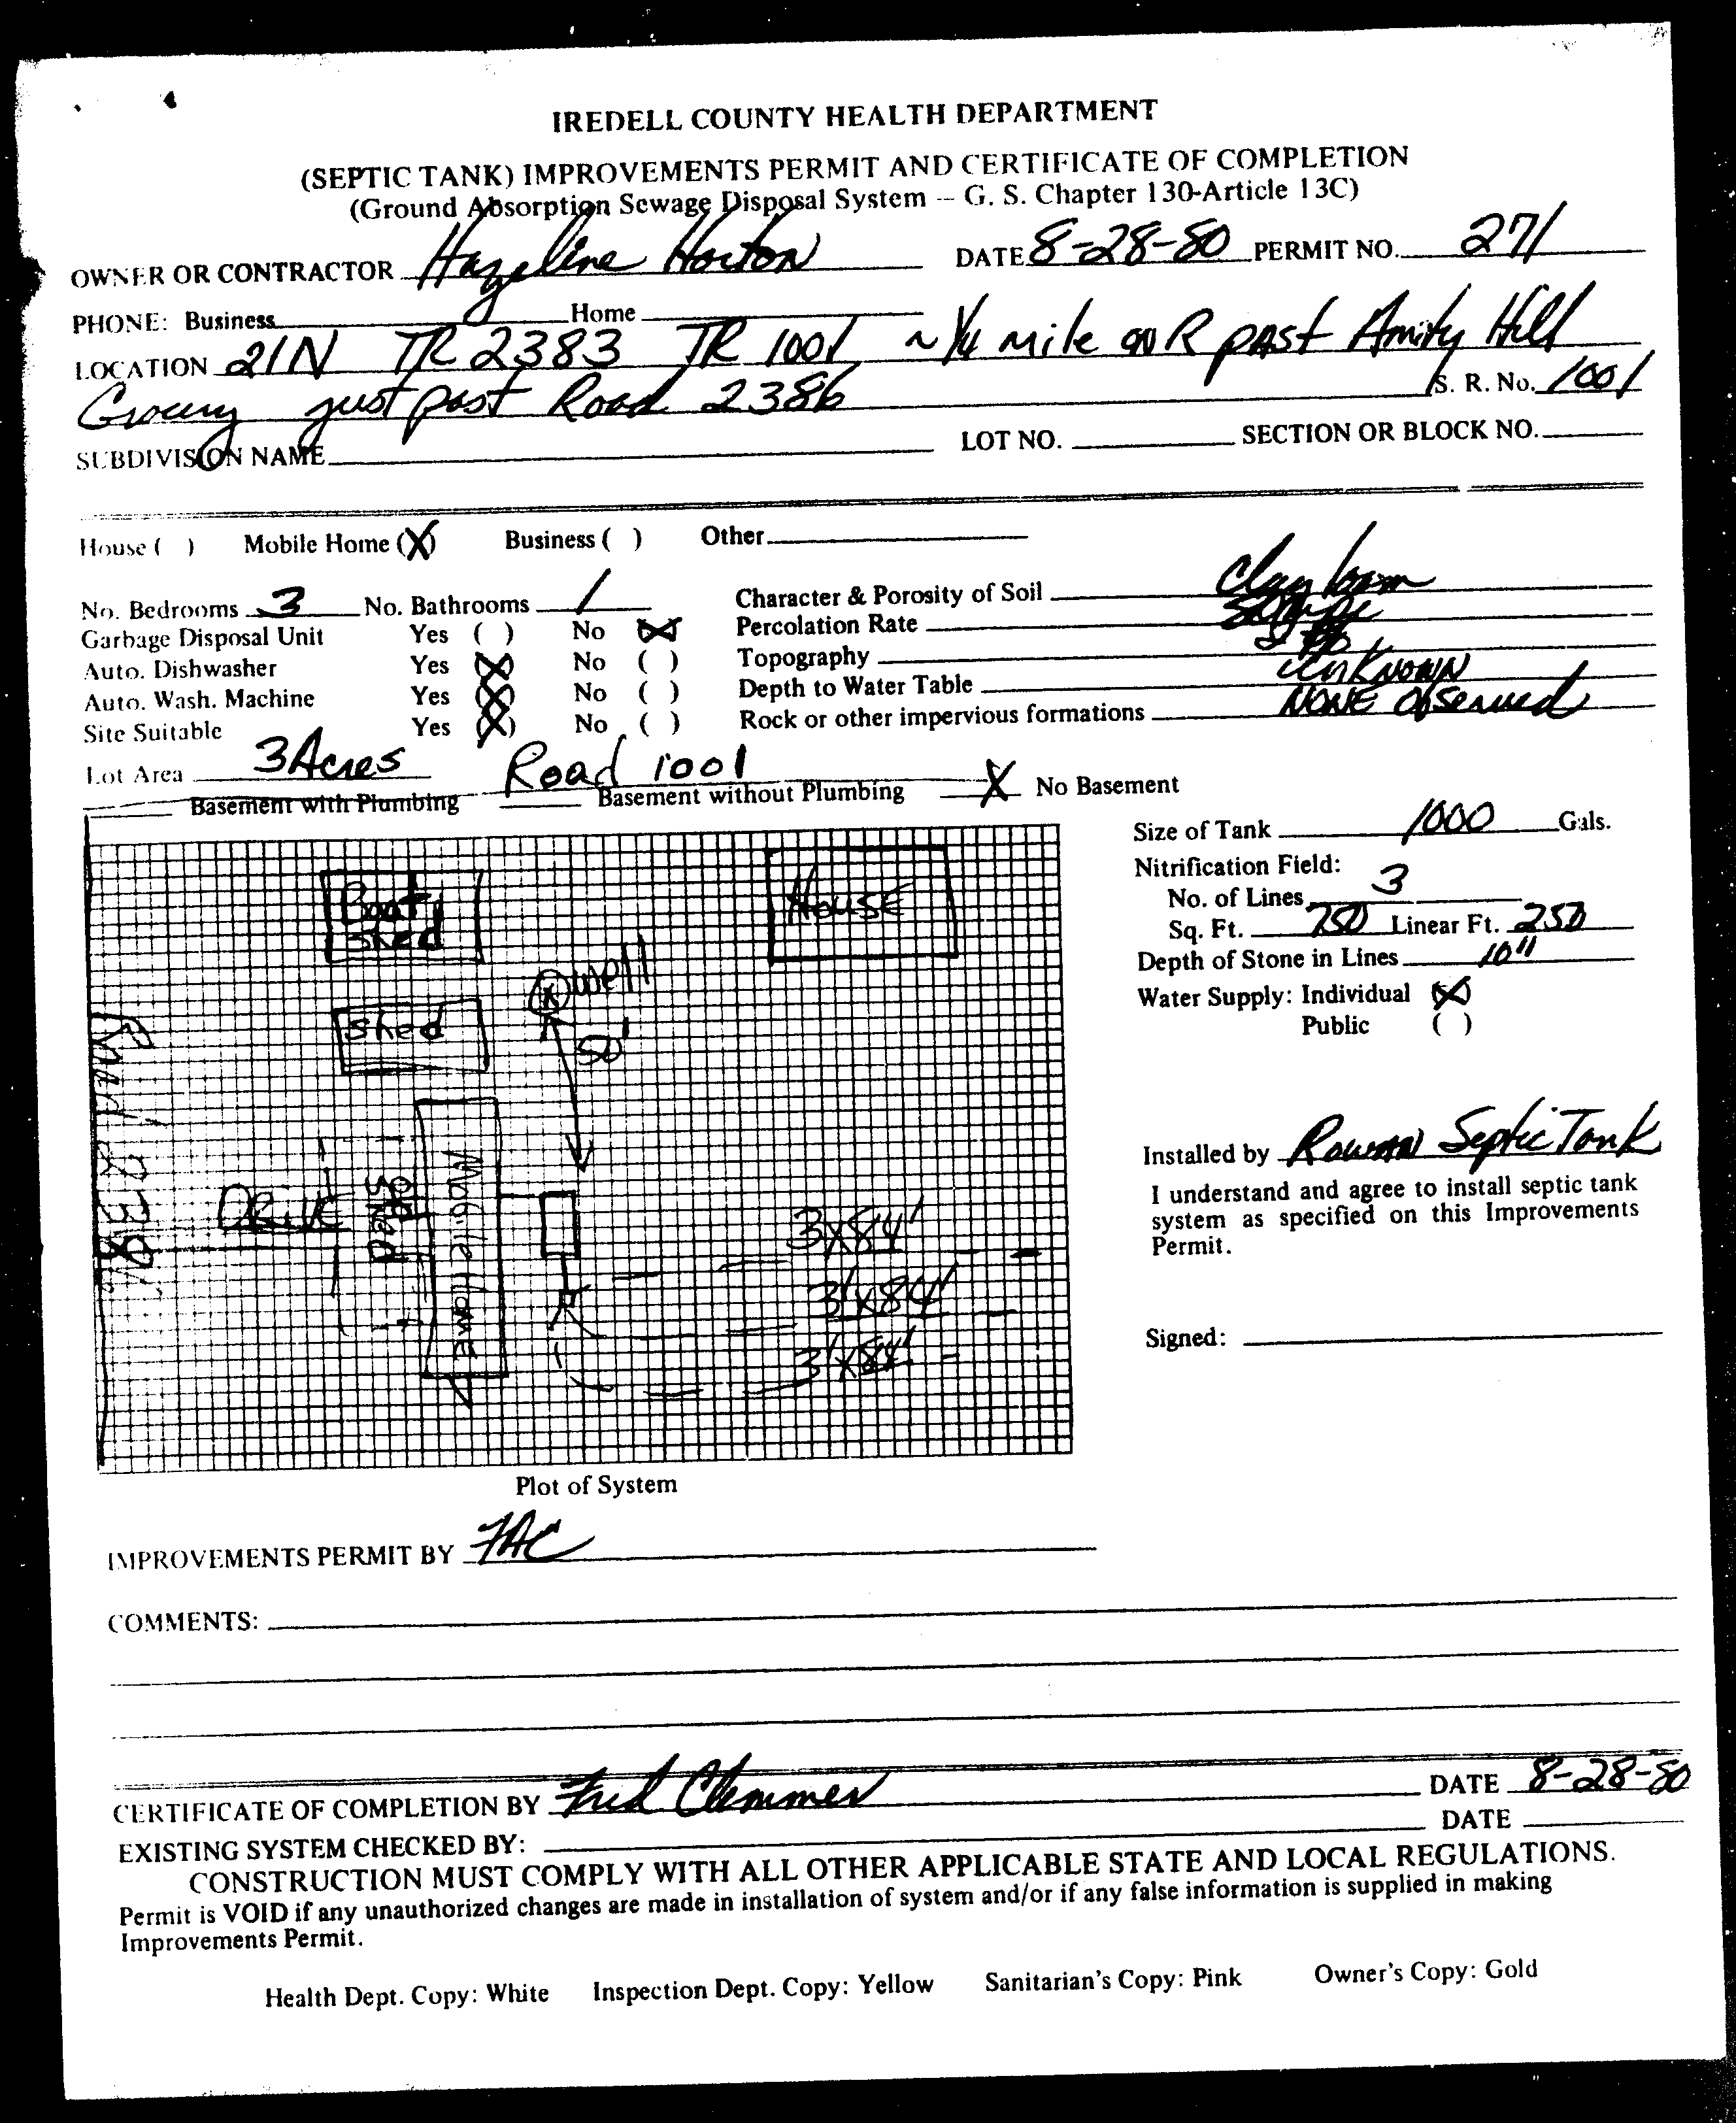 IREDELL COUNTY HEALTH DEPARTMENT
(SEPTIC TANK) IMPROVEMENTS PERMIT AND CERTIFICATE OF COMPLETION
(Ground Absorption Sewage Disposal System -- G. S. Chapter 130-Article 13C)
OWNER OR CONTRACTOR Hazeline Horton DATE 8-28-80 PERMIT NO. 271
PHONE: Business Home
LOCATION 21N TR 2383 TR 1001 ~ 1/4 mile on R past Amity Hill
Grocery just past Road 2386 S. R. No. 1001
SUBDIVISION NAME LOT NO. SECTION OR BLOCK NO.
House ( ) Mobile Home (X) Business ( ) Other
No. Bedrooms 3 No. Bathrooms 1 Character & Porosity of Soil Clay loam
Garbage Disposal Unit Yes ( ) No (X) Percolation Rate
Auto. Dishwasher Yes (X) No ( ) Topography
Auto. Wash. Machine Yes (X) No ( ) Depth to Water Table unknown
Site Suitable Yes (X) No ( ) Rock or other impervious formations NONE Observed
Lot Area 3 Acres Road 1001
Basement with Plumbing Basement without Plumbing X No Basement
Size of Tank 1000 Gals.
Nitrification Field:
No. of Lines 3
Sq. Ft. 750 Linear Ft. 250
Depth of Stone in Lines 10"
Water Supply: Individual (X)
Public ( )
Boat
shed
House
well
shed
50'
Road 2386
Drive
old
Shed
Mobile Home
3x84'
3'x84'
3'x84'
Installed by Rowan Septic Tank
I understand and agree to install septic tank
system as specified on this Improvements
Permit.
Signed:
Plot of System
IMPROVEMENTS PERMIT BY FAC
COMMENTS:
CERTIFICATE OF COMPLETION BY Fred Clemmer DATE 8-28-80
EXISTING SYSTEM CHECKED BY: DATE
CONSTRUCTION MUST COMPLY WITH ALL OTHER APPLICABLE STATE AND LOCAL REGULATIONS.
Permit is VOID if any unauthorized changes are made in installation of system and/or if any false information is supplied in making
Improvements Permit.
Health Dept. Copy: White Inspection Dept. Copy: Yellow Sanitarian's Copy: Pink Owner's Copy: Gold